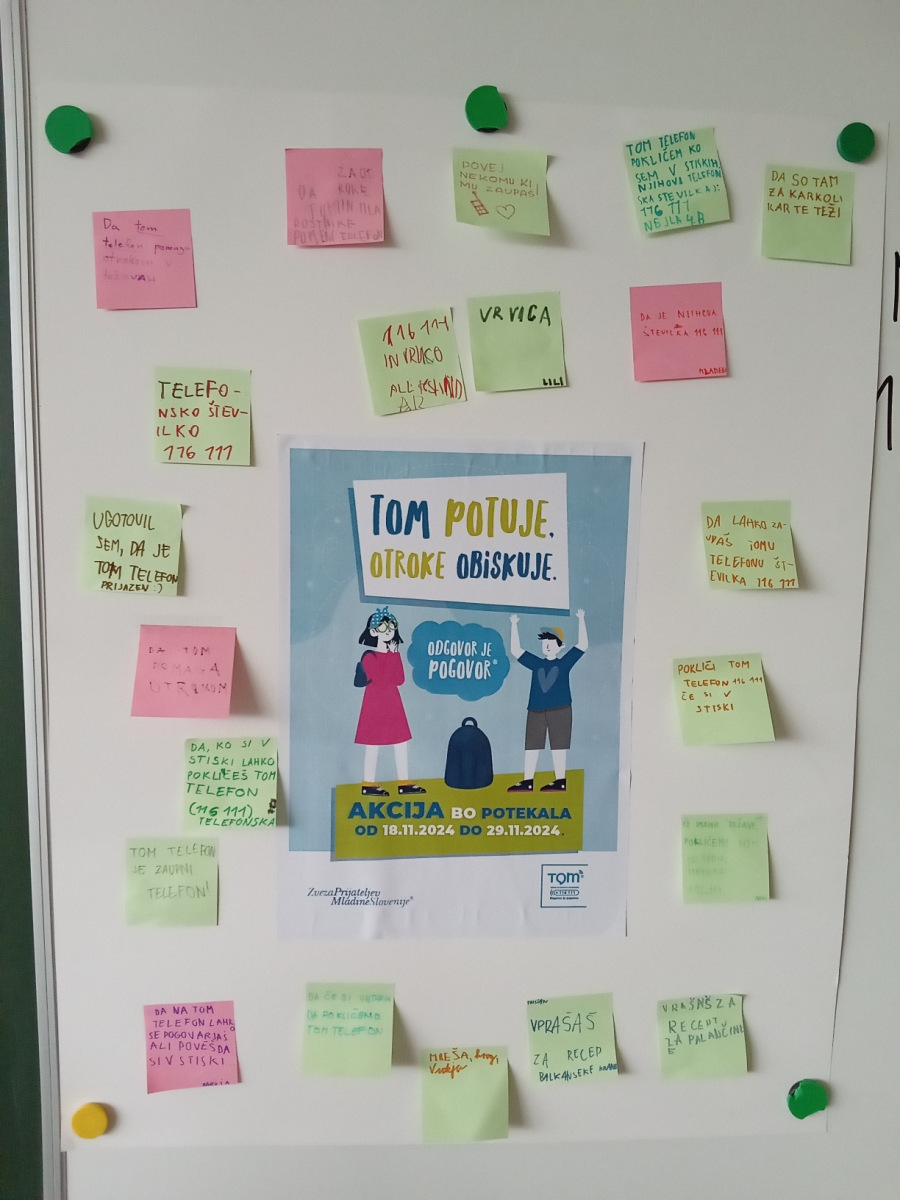 Da tom
telefon
otrokom v
DA
POVEJ
NEKOMU KI
MU ZAUPAŠ!
TOM TELEFON
POKLIČEM KO
SEM V STISKI
NJIHOVA TELEFON
SKA ŠTEVILKA JE:
116 111
NEJLA 4.B
DA SO TAM
ZA KARKOLI
KAR TE TEŽI
116 111
IN
VRVICA
LILI
DA JE NJIHOVA
ŠTEVILKA 116 111
TELEFO-
NSKO ŠTEV-
ILKO
116 111
TOM POTUJE.
OTROKE OBISKUJE.
ODGOVOR JE
POGOVOR®
AKCIJA BO POTEKALA
OD 18.11.2024 DO 29.11.2024.
ZvezaPrijateljev
MladineSlovenije®
TOM®
UGOTOVIL
SEM, DA JE
TOM TELEFON
PRIJAZEN :)
DA LAHKO ZA-
UPAŠ TOMU
TELEFONU ŠT-
EVILKA 116 111
DA TOM
POMAGA
OTROKOM
POKLIČI TOM
TELEFON 116 111
ČE SI V
STISKI
DA, KO SI V
STISKI LAHKO
POKLIČEŠ TOM
TELEFON
(116 111)
TELEFONSKA
TOM TELEFON
JE ZAUPNI
TELEFON!
POKLIČEM
DA NA TOM
TELEFON LAHKO
SE POGOVARJAŠ
ALI POVEŠ DA
SI V STISKI
DA ČE SI
DA POKLIČEMO
TOM TELEFON
MREŽA, krog,
TRISTAN
VPRAŠAŠ
ZA RECEP
BALKANSEKE
ZA
RECEPT
ZA PALAČINK
E